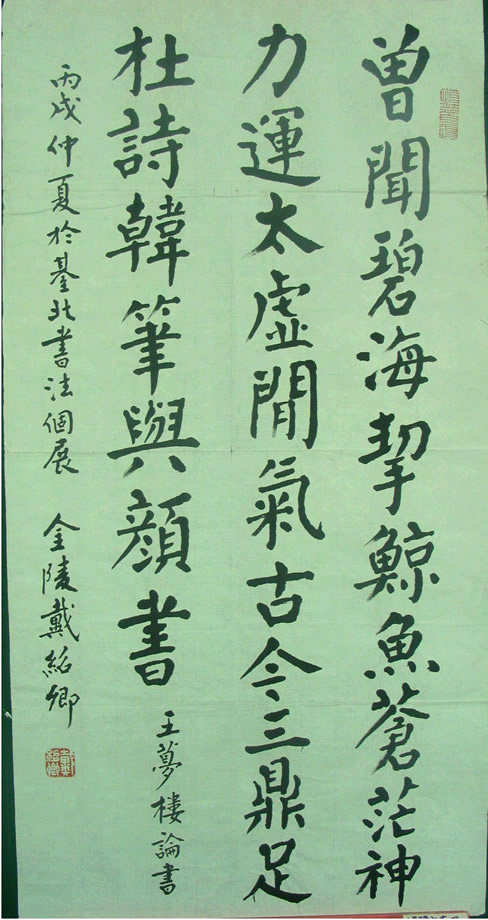 曾聞碧海掣鯨魚蒼茫神
力運太虛閒氣古今三鼎足
杜詩韓筆與顏書
王夢樓論書
丙戌仲夏於臺北書法個展 金陵戴紹卿